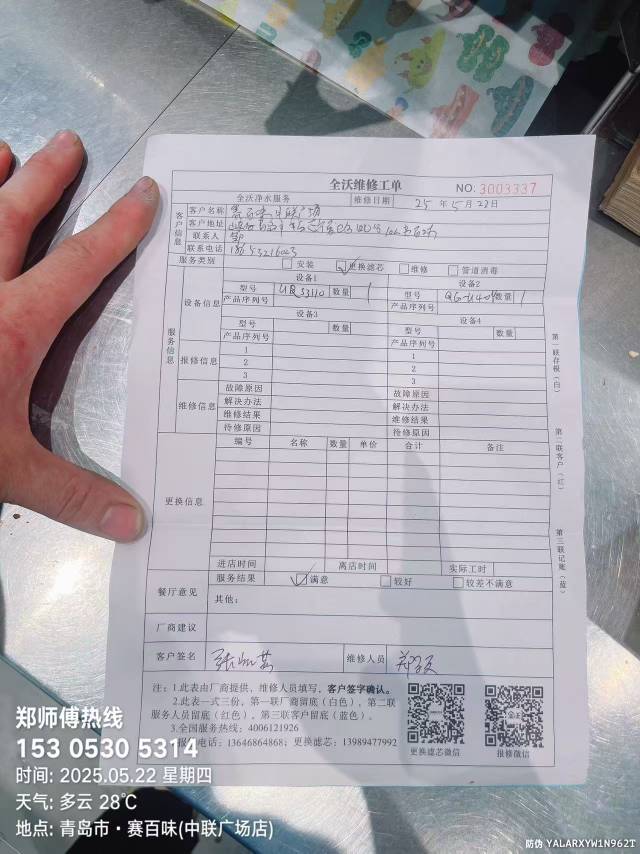 全沃维修工单
NO: 3003337
全沃净水服务 维修日期 25年5月22日
客户信息
客户名称 赛百味中联广场
客户地址
联系人 郑
联系电话
服务类别 安装 更换滤芯 维修 管道消毒
服务信息
设备信息
设备1 设备2
型号 数量 1 型号 数量 1
产品序列号 产品序列号
设备3 设备4
型号 数量 型号 数量
产品序列号 产品序列号
报修信息
1 1
2 2
3 3
维修信息
故障原因 故障原因
解决办法 解决办法
维修结果 维修结果
待修原因 待修原因
更换信息
编号 名称 数量 单价 合计 备注
进店时间 离店时间 实际工时
餐厅意见
服务结果 满意 较好 较差不满意
其他:
厂商建议
客户签名 维修人员
第一联存根(白)
第二联客户(红)
第三联记账(蓝)
注:1.此表由厂商提供、维修人员填写,客户签字确认。
2.此表一式三份,第一联厂商留底(白色),第二联
服务人员留底(红色),第三联客户留底(蓝色)。
3.全国服务热线:4006121926
电话:13646864868; 更换滤芯:13989477992
更换滤芯微信 报修微信
郑师傅热线
153 0530 5314
时间: 2025.05.22 星期四
天气: 多云 28℃
地点: 青岛市·赛百味(中联广场店)
防伪 YALARXYW1N962T